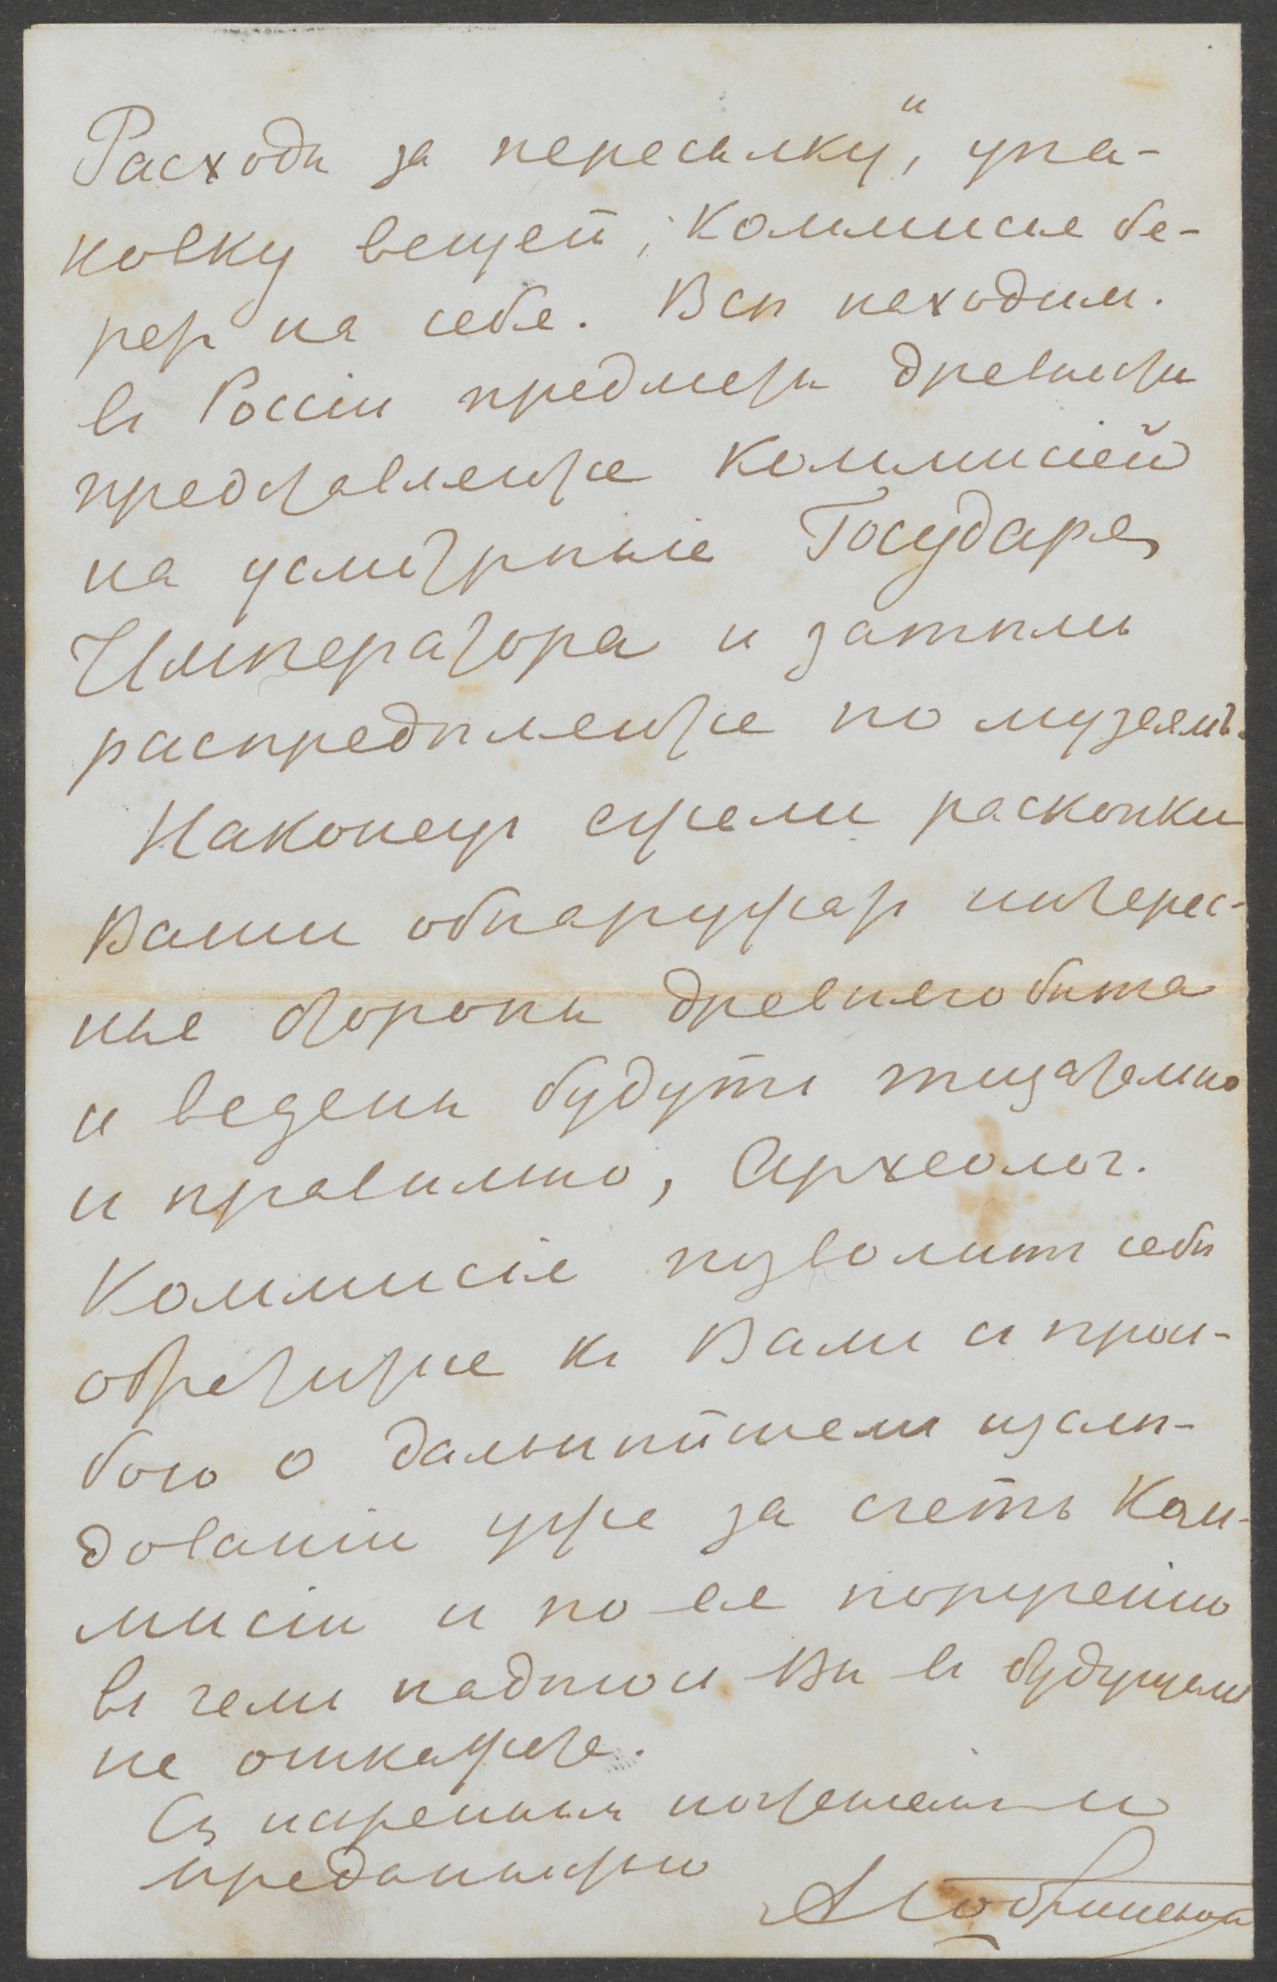 Расходы за пересылку и упа-
ковку вещей, Коммисія бе-
ретъ на себя. Всѣ находим.
въ Россіи предметы древности
представляются Коммисіей
на усмотрѣніе Государя
Императора и затѣмъ
распредѣляются по музеямъ.
Наконецъ если раскопки
Ваши обнаружатъ интерес-
ные стороны древняго быта
и ведены будутъ тщательно
и правильно, Археолог.
Коммисія позволитъ себѣ
обратиться къ Вамъ съ прось-
бою о дальнѣйшемъ изслѣ-
дованіи уже за счетъ Ком-
мисіи и по ея порученію
въ чемъ надѣюсь Вы въ будущемъ
не откажете.
Съ искреннимъ почтеніемъ и
преданностью
А Бобринской